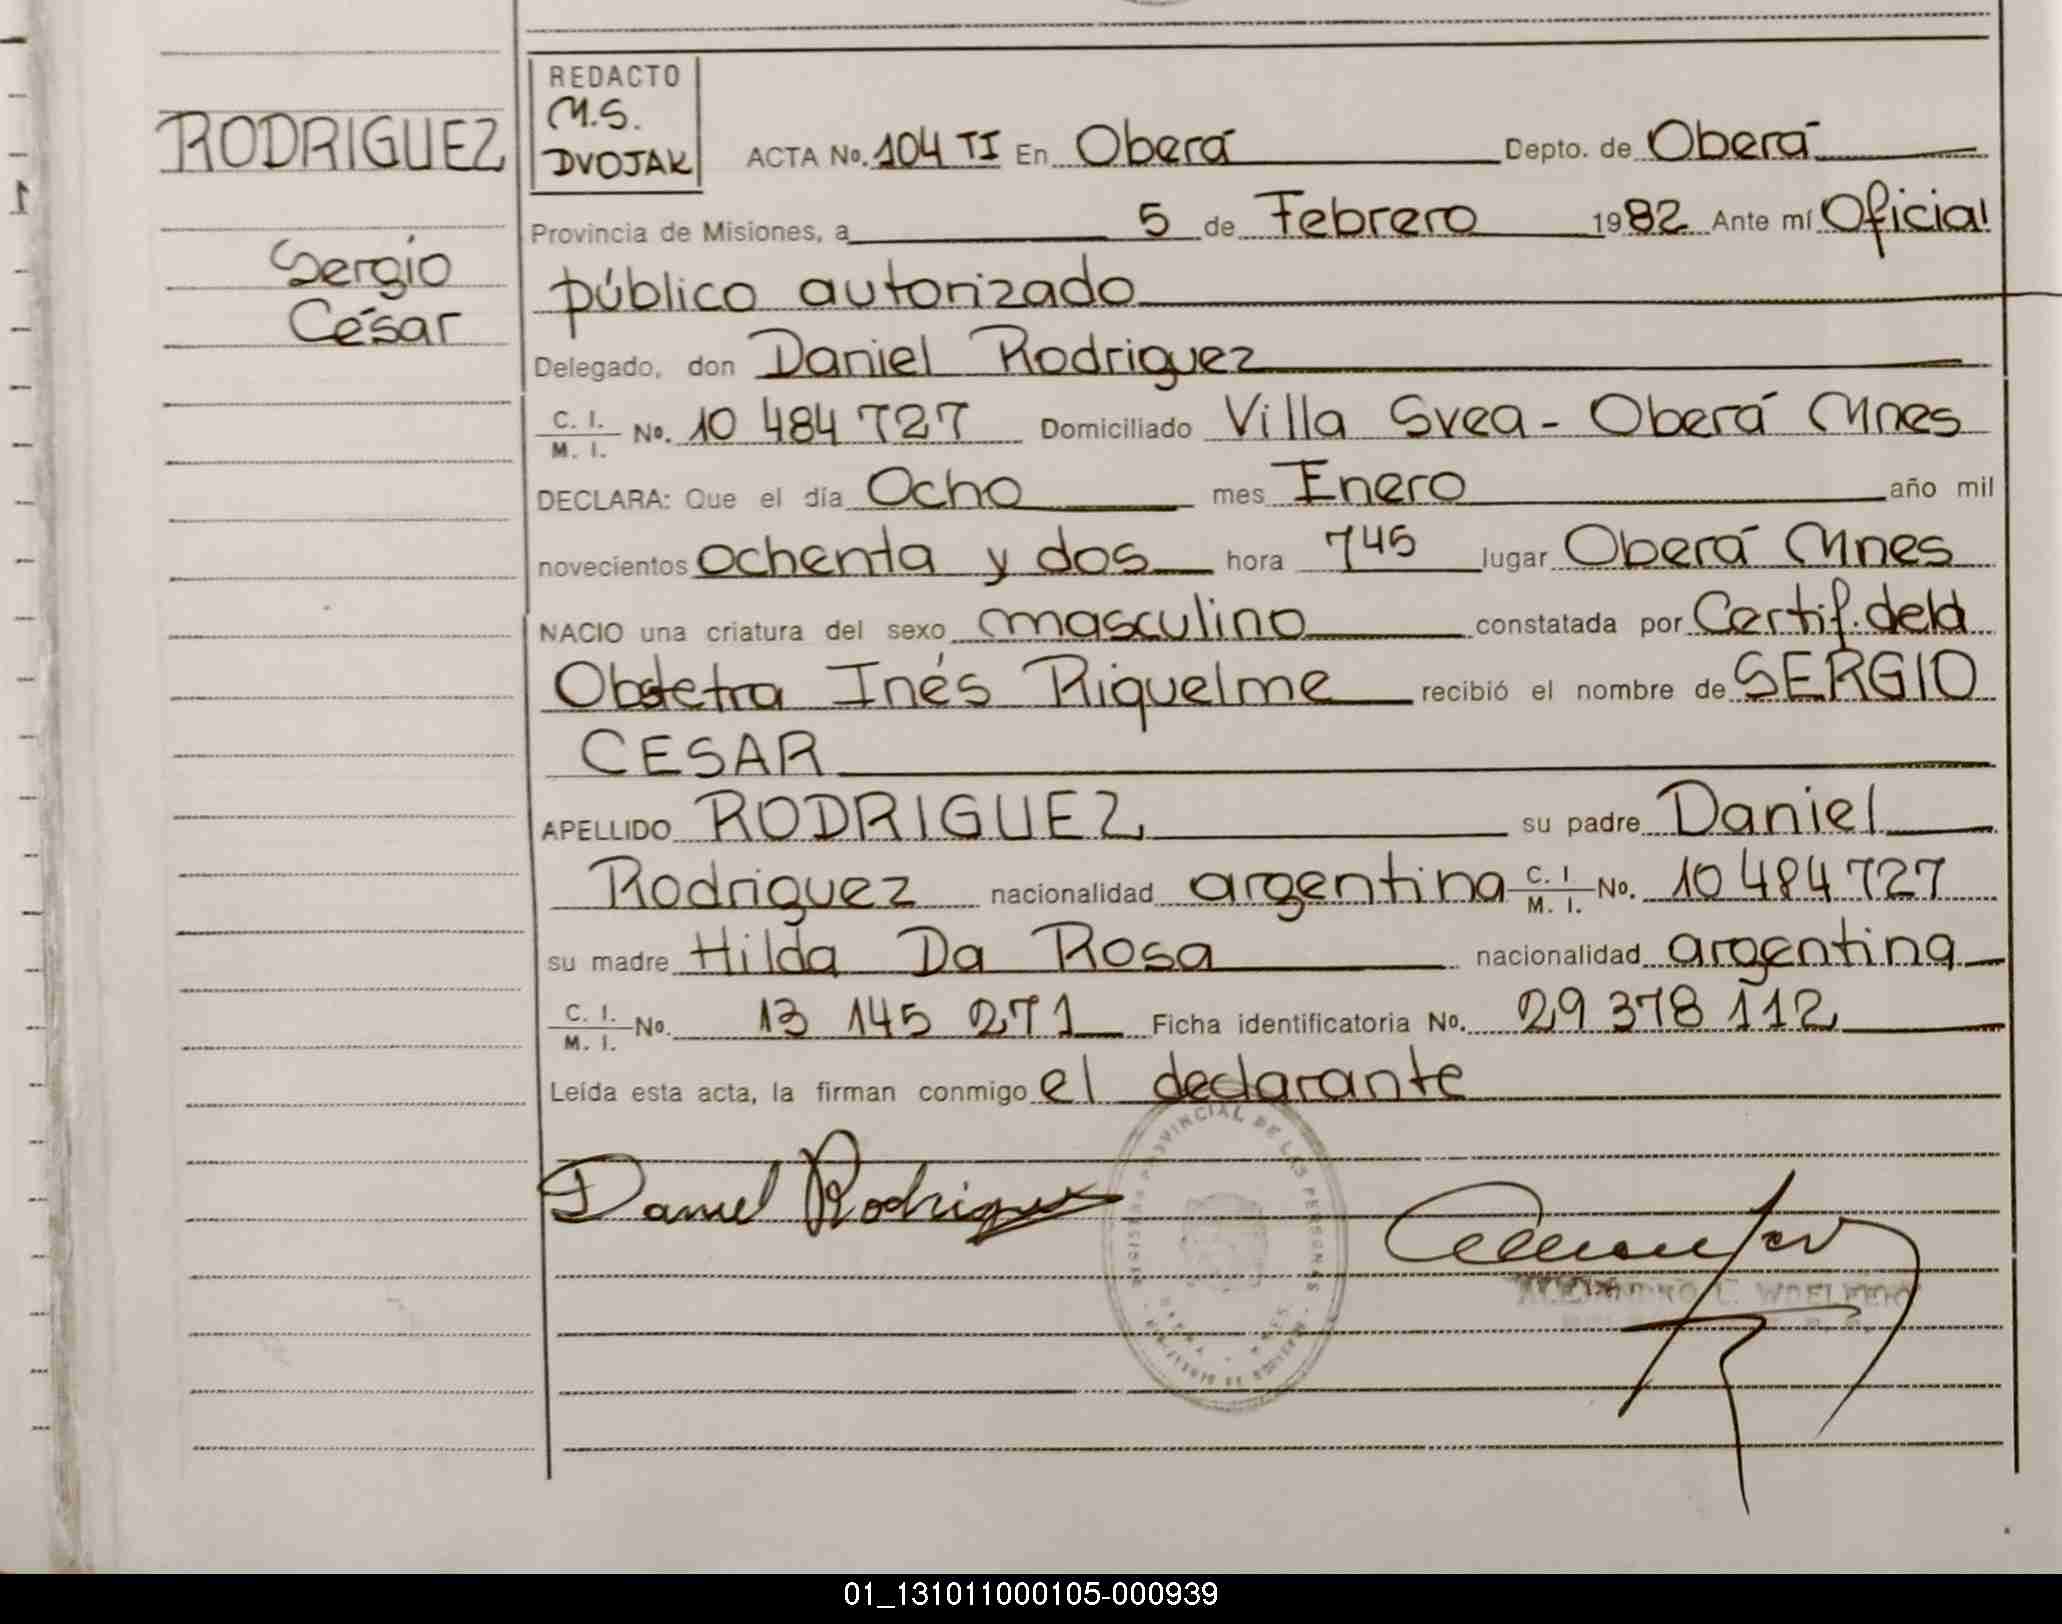 RODRIGUEZ
Sergio
César
REDACTO
M.S.
DVOJAK
ACTA No. 104 TI En Oberá Depto. de Oberá
Provincia de Misiones, a 5 de Febrero 1982 Ante mí Oficial
público autorizado
Delegado, don Daniel Rodriguez
C. I. M. I. No. 10 484 727 Domiciliado Villa Svea - Oberá Mnes
DECLARA: Que el día Ocho mes Enero año mil
novecientos ochenta y dos hora 745 lugar Oberá Mnes
NACIO una criatura del sexo masculino constatada por Certif. dela
Obstetra Inés Riquelme recibió el nombre de SERGIO
CESAR
APELLIDO RODRIGUEZ su padre Daniel
Rodriguez nacionalidad argentina C. I. M. I. No. 10 484 727
su madre Hilda Da Rosa nacionalidad argentina
C. I. M. I. No. 13 145 271 Ficha identificatoria No. 29 378 112
Leída esta acta, la firman conmigo el declarante
Daniel Rodriguez
PROVINCIAL DE LAS PERSONAS
01_131011000105-000939